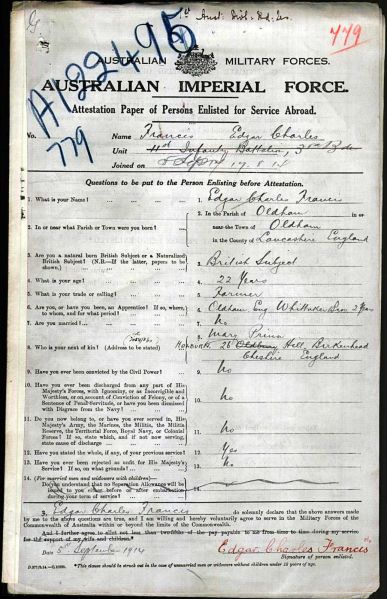 1st Aust. Div. Hd. Qrs.
779
A122495
779
AUSTRALIAN MILITARY FORCES.
AUSTRALIAN IMPERIAL FORCE.
Attestation Paper of Persons Enlisted for Service Abroad.
No. Name Francis Edgar Charles
Unit Infantry Battalion,
Joined on 17.8.14
Questions to be put to the Person Enlisting before Attestation.
1. What is your Name? 1. Edgar Charles Francis
2. In or near what Parish or Town were you born? 2. In the Parish of Oldham in or
near the Town of Oldham
in the County of Lancashire England
3. Are you a natural born British Subject or a Naturalized
British Subject? (N.B.—If the latter, papers to be
shown). 3. British Subject
4. What is your age? 4. 22 Years
5. What is your trade or calling? 5. Farmer
6. Are you, or have you been, an Apprentice? If so, where,
to whom, and for what period? 6. Oldham Eng Whittaker 2 Years
7. Are you married? 7. No
8. Who is your next of kin? (Address to be stated) 8. Mary
26 Hill, Birkenhead
Cheshire England
9. Have you ever been convicted by the Civil Power? 9. No
10. Have you ever been discharged from any part of His
Majesty's Forces, with Ignominy, or as Incorrigible and
Worthless, or on account of Conviction of Felony, or of a
Sentence of Penal Servitude, or have you been dismissed
with Disgrace from the Navy? 10. No
11. Do you now belong to, or have you ever served in, His
Majesty's Army, the Marines, the Militia, the Militia
Reserve, the Territorial Force, Royal Navy, or Colonial
Forces? If so, state which, and if not now serving,
state cause of discharge 11. No
12. Have you stated the whole, if any, of your previous service? 12. Yes
13. Have you ever been rejected as unfit for His Majesty's
Service? If so, on what grounds? 13. No
14. (For married men and widowers with children)
Do you understand that no Separation Allowance will be
issued to you either before or after embarkation
during your term of service? 14.
I, Edgar Charles Francis do solemnly declare that the above answers made
by me to the above questions are true, and I am willing and hereby voluntarily agree to serve in the Military Forces of
the Commonwealth of Australia within or beyond the limits of the Commonwealth.
And I further agree to allot not less than two-fifths of the pay payable to me from time to time during my service
for the support of my wife and children.
Date 5th September 1914 Edgar Charles Francis
Signature of person enlisted.
*This clause should be struck out in the case of unmarried men or widowers without children under 18 years of age.